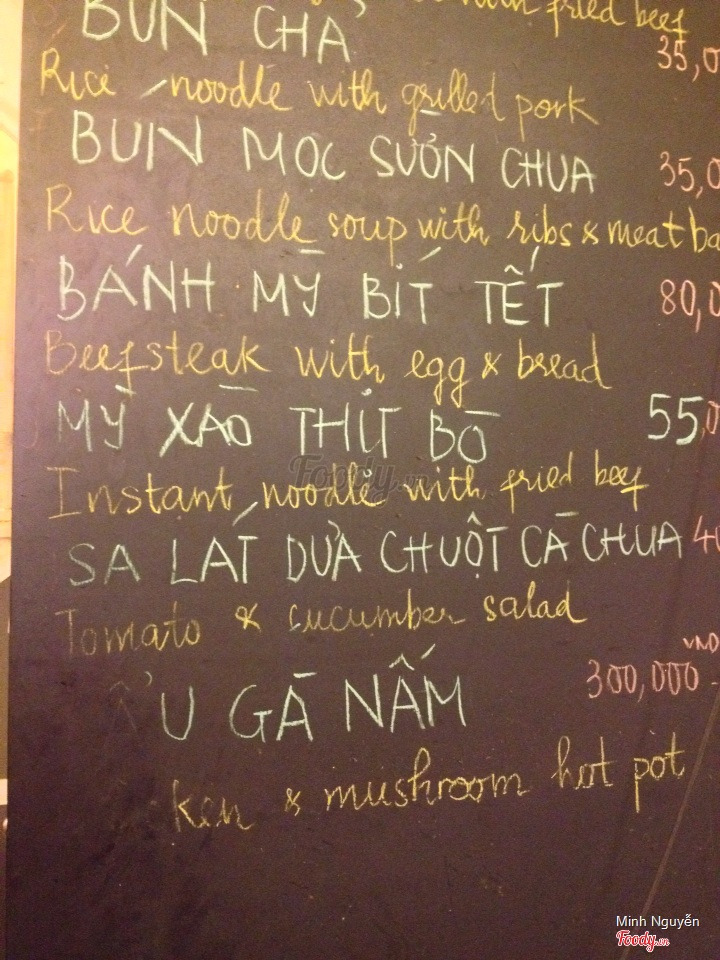 fried beef
BÚN CHẢ 35,0
Rice noodle with grilled pork
BÚN MỌC SƯỜN CHUA 35,0
Rice noodle soup with ribs & meat ba
BÁNH MỲ BÍT TẾT 80,0
Beefsteak with egg & bread
MỲ XÀO THỊT BÒ 55,0
Instant noodle with fried beef
SA LÁT DƯA CHUỘT CÀ CHUA 40
Tomato & cucumber salad
VND
ẨU GÀ NẤM 300,000
ken & mushroom hot pot
Foody.vn
Minh Nguyễn
Foody.vn